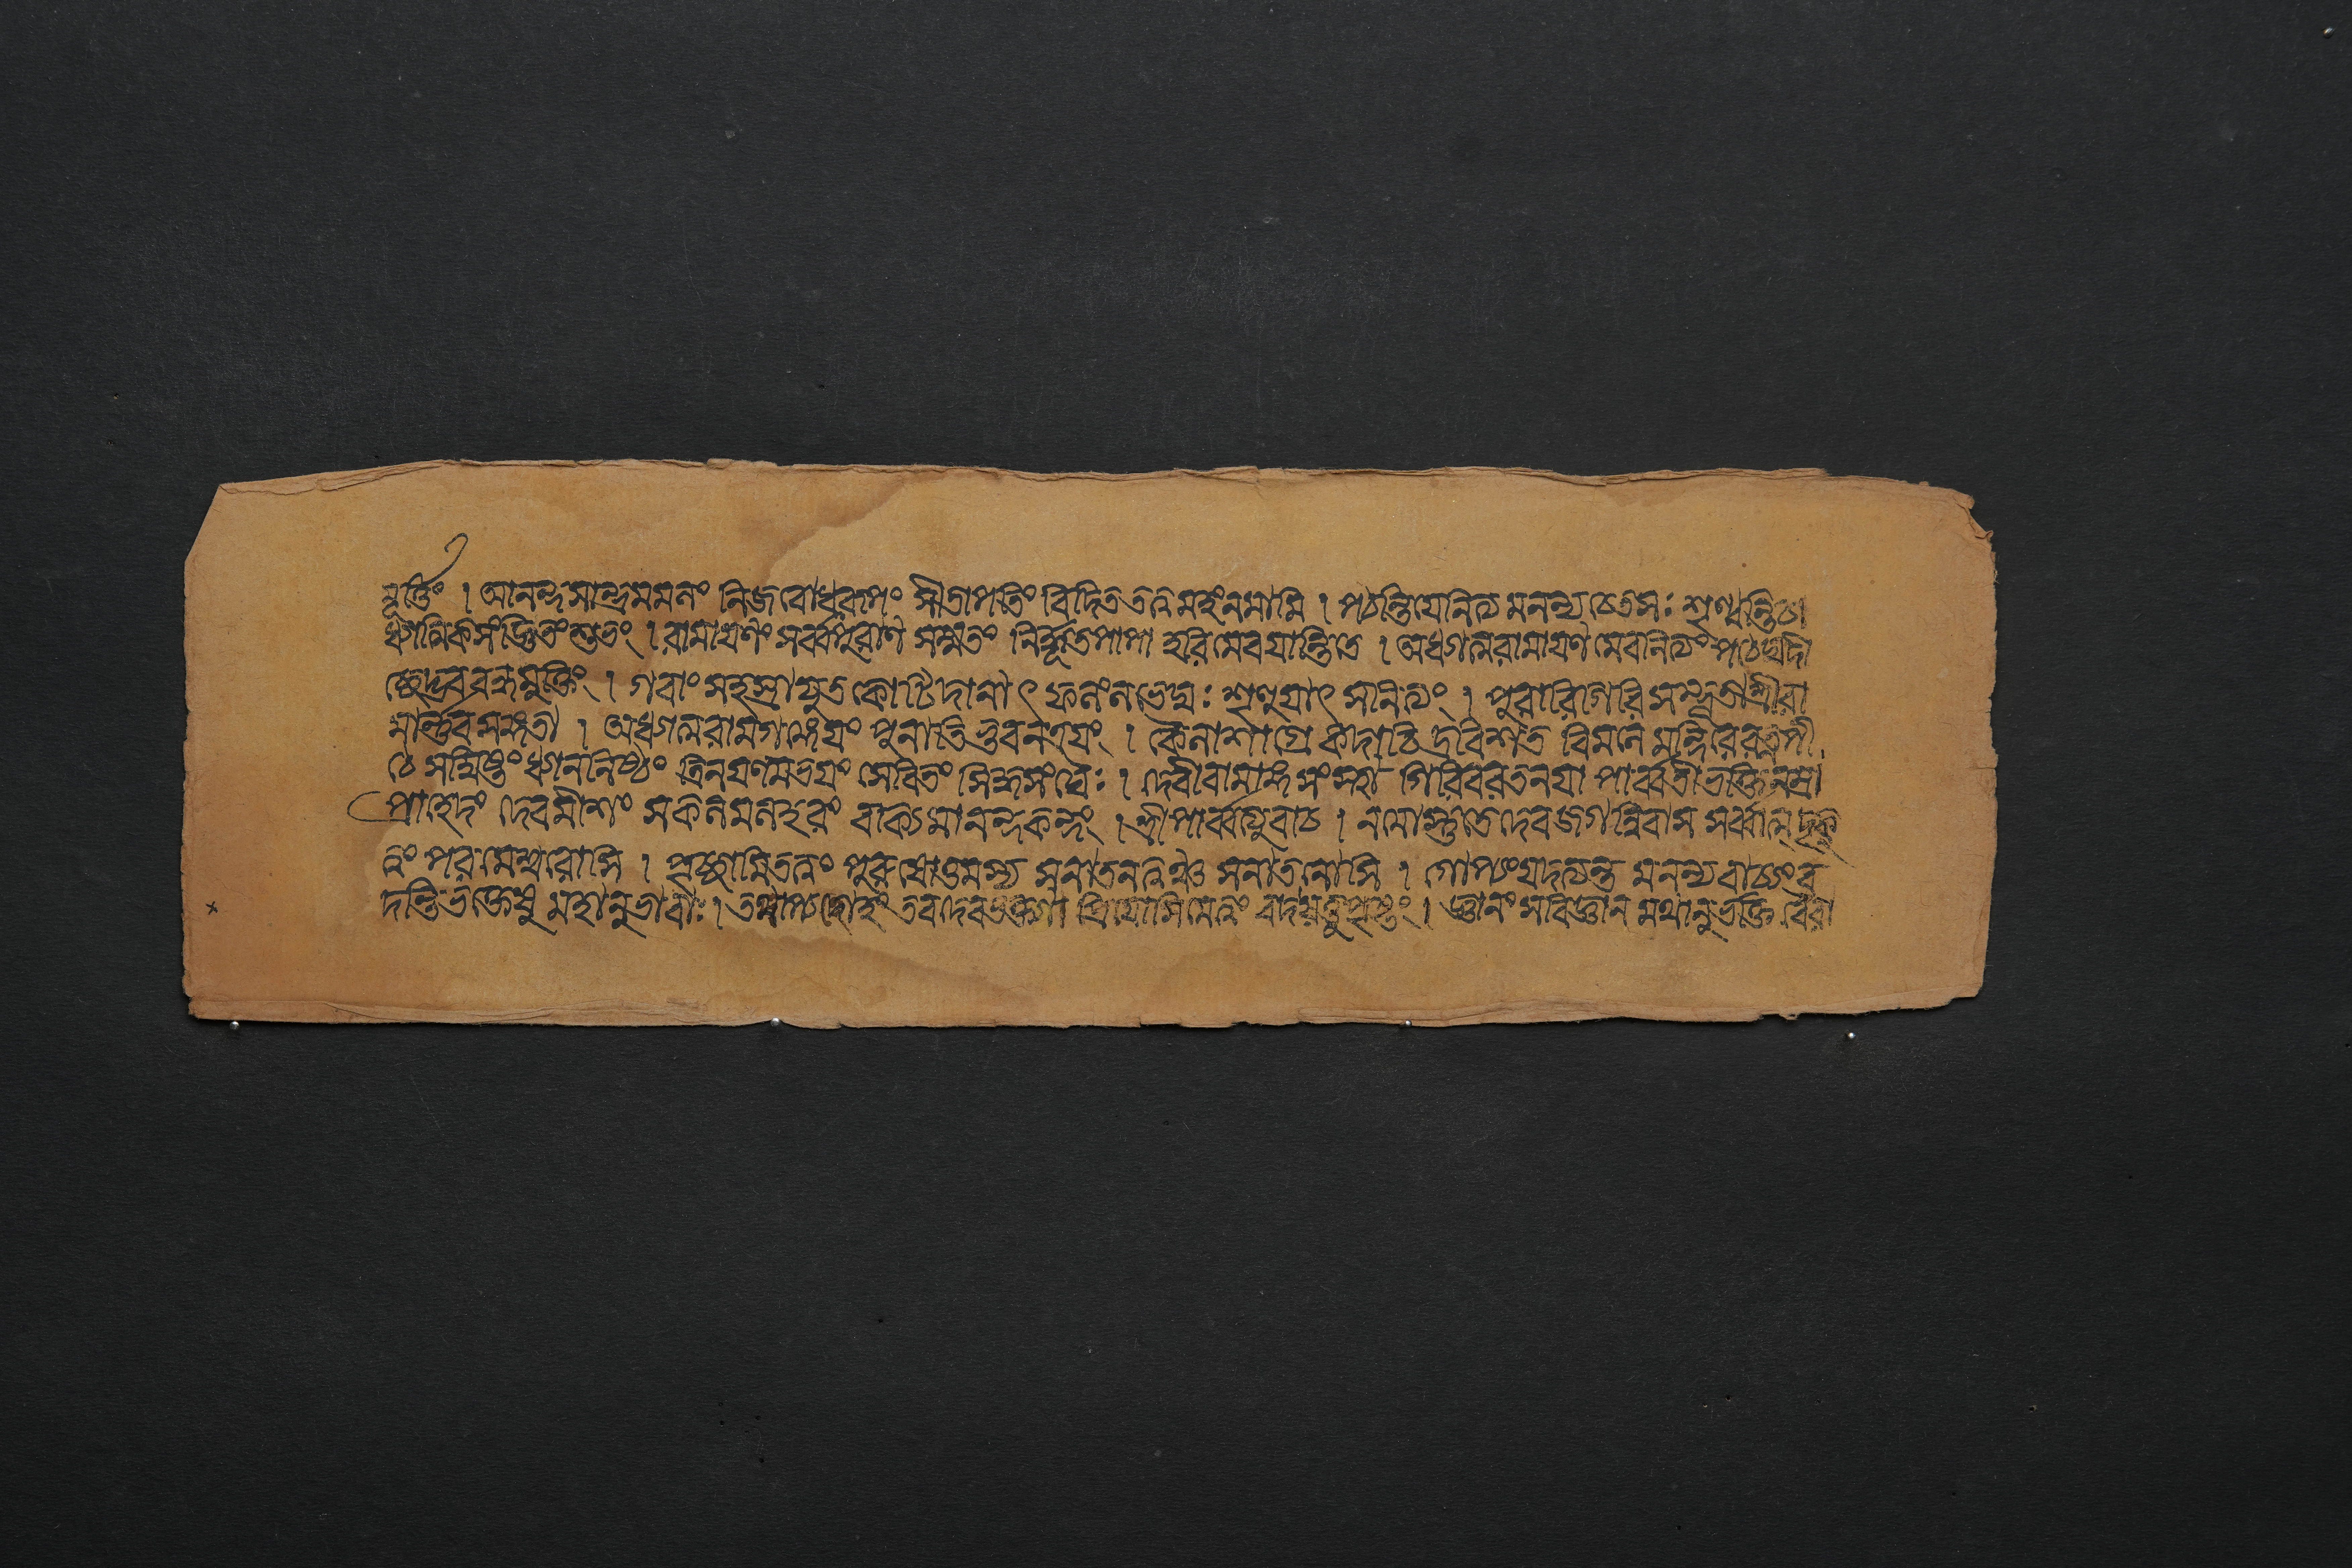 মূর্ত্তিং । আনন্দসান্দ্রমমলং নিজবোধরূপং সীতাপতিং বিদিততত্ত্বমহংনমামি । পঠন্তিযেনিত্যমনন্যচেতসঃ শৃণ্বন্তিচা
ধ্যাত্মিকসংজ্ঞিতংশুভং । রামায়ণং সর্ব্বপুরাণ সম্মতং নির্দ্ধূতপাপা হরিমেবযান্তিতে । অধ্যাত্মরামায়ণমেবনিত্যং পঠেদ্যদী
চ্ছেদ্ভববন্ধমুক্তিং । গবাংসহস্রাযুতকোটিদানাৎ ফলংলভেদ্যঃ শৃণুয়াৎ সনিত্যং । পুরারিগিরিসম্ভূতাশ্রীরা
মার্ণ্ণবসঙ্গতা । অধ্যাত্মরামগঙ্গেয়ং পুনাতিভুবনত্রয়ং । কৈলাশাগ্রে কদাচিদ্রবিশত বিমলে মন্দিরেরত্নপী
ঠে সম্বিষ্টংধ্যাননিষ্ঠং ত্রিনয়ণমভয়ং সেবিতং সিদ্ধসংঘৈঃ । দেবীবামাঙ্কসংস্থা গিরিবরতনয়া পার্ব্বতীভক্তিনম্রা
প্রাহেদং দেবমীশং সকলমলহরং বাক্যমানন্দকন্দং । শ্রীপার্ব্বত্যুবাচ । নমোস্তুতেদেবজগন্নিবাস সর্ব্বাত্মদৃক্
ত্বং পরমেশ্বরোসি । পৃচ্ছামিতত্ত্বং পুরুষোত্তমস্য সনাতনত্বঞ্চ সনাতনোসি । গোপ্যংযদত্যন্ত মনন্যবাচ্যংব
দন্তিভক্তেষু মহানুভাবাঃ । তদপ্যহোহং তবদেবভক্তা প্রিয়োসিমেত্বং বদযত্তুপৃষ্টং । জ্ঞানংসবিজ্ঞানমথানুভক্তিবৈরা